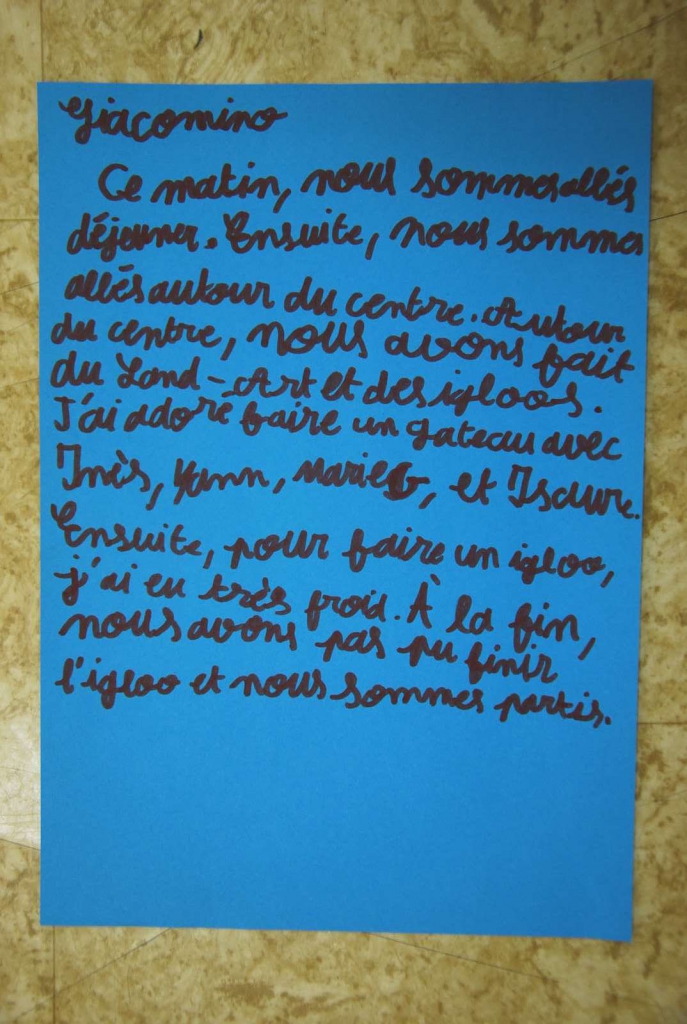 Giacomino
Ce matin, nous sommes allés
déjeuner. Ensuite, nous sommes
allés autour du centre. Autour
du centre, nous avons fait
du Land-Art et des igloos.
J'ai adoré faire un gateau avec
Inès, Yann, Marie G, et Isaure.
Ensuite, pour faire un igloo,
j'ai eu très froid. À la fin,
nous avons pas pu finir
l'igloo et nous sommes partis.